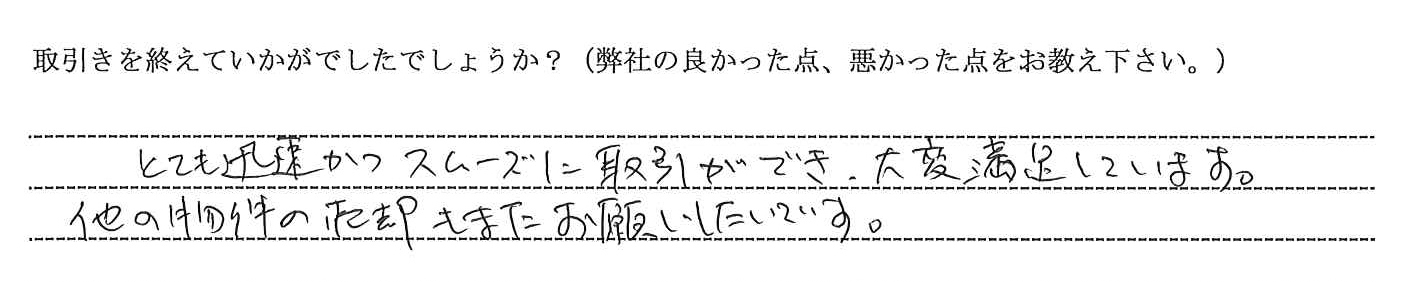 取引きを終えていかがでしたでしょうか？（弊社の良かった点、悪かった点をお教え下さい。）
とても迅速かつスムーズに取引ができ、大変満足しています。
他の物件の売却もまたお願いしたいです。